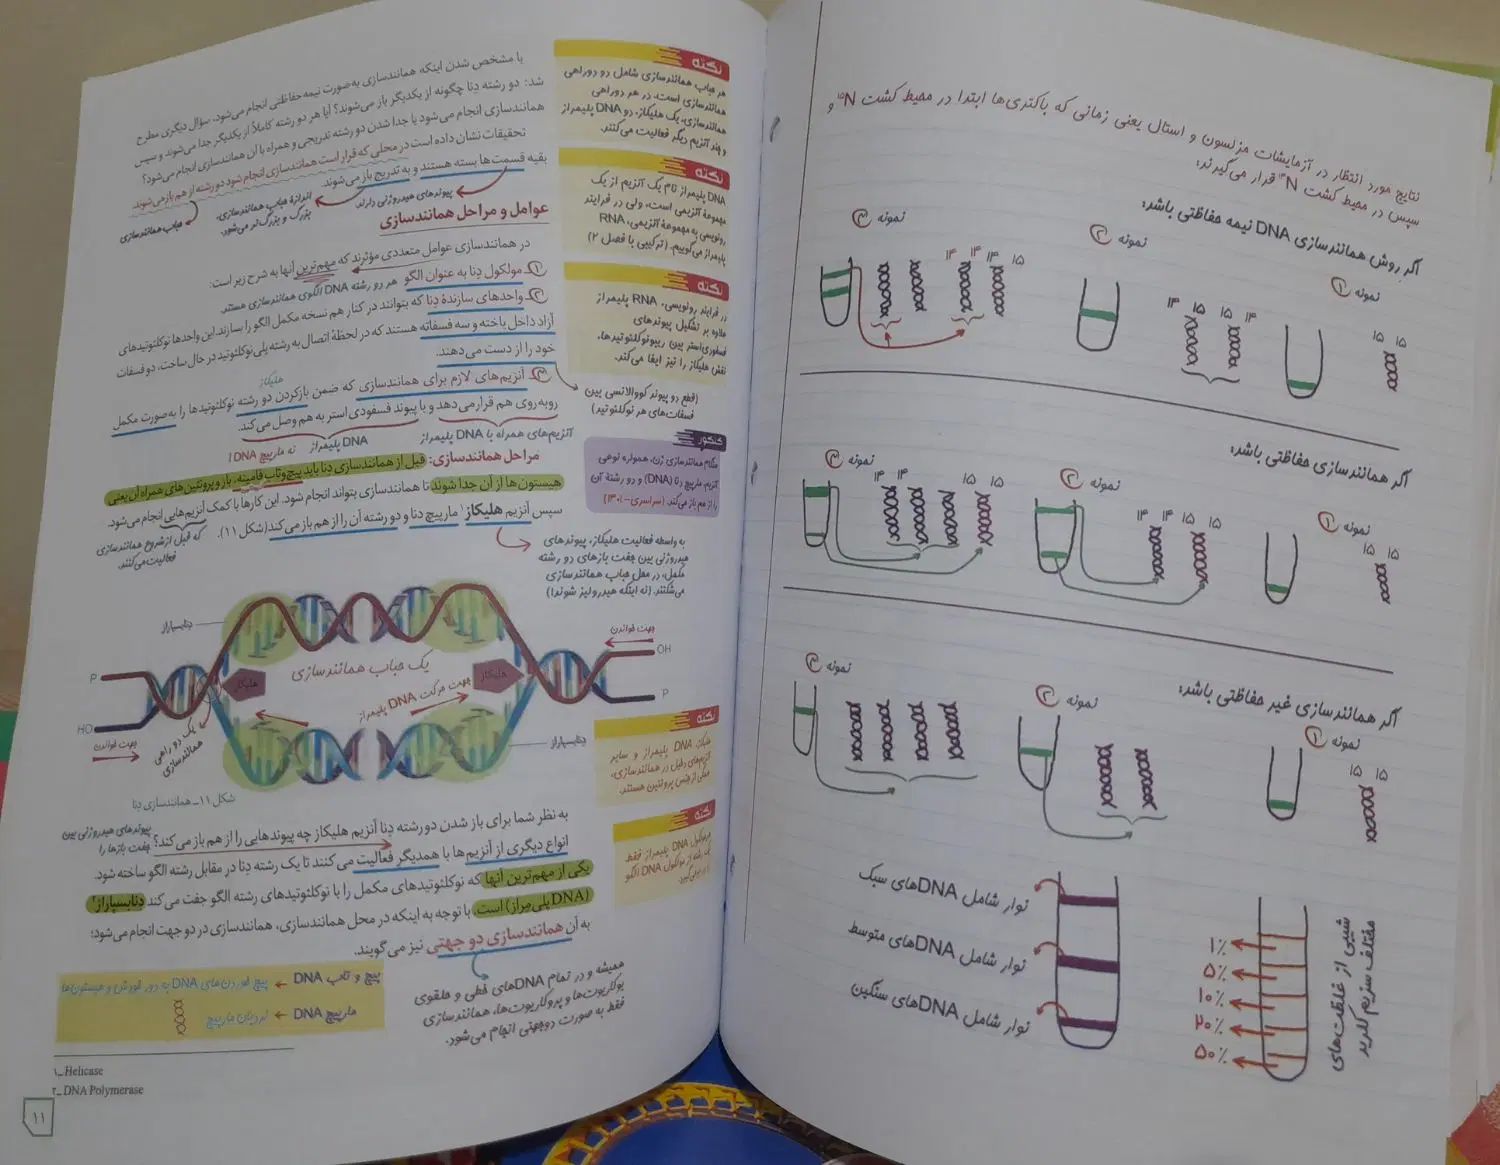 نتایج مورد انتظار در آزمایشات مزلسون و استال یعنی زمانی که باکتری‌ها ابتدا در محیط کشت N¹⁵ و
سپس در محیط کشت N¹⁴ قرار می‌گیرند:
اگر روش همانندسازی DNA نیمه حفاظتی باشد:
نمونه ①
نمونه ②
نمونه ③
۱۵ ۱۵
۱۴ ۱۵ ۱۵ ۱۴
۱۴ ۱۴ ۱۵
اگر همانندسازی حفاظتی باشد:
نمونه ①
نمونه ②
نمونه ③
۱۵ ۱۵
۱۴ ۱۴ ۱۵ ۱۵
۱۴ ۱۴ ۱۵ ۱۵
اگر همانندسازی غیر حفاظتی باشد:
نمونه ①
نمونه ②
نمونه ③
۱۵ ۱۵
نوار شامل DNAهای سبک
نوار شامل DNAهای متوسط
نوار شامل DNAهای سنگین
۱٪
۵٪
۱۰٪
۲۰٪
۵۰٪
شیبی از غلظت‌های
مختلف سزیم کلرید
با مشخص شدن اینکه همانندسازی به‌صورت نیمه‌حفاظتی انجام می‌شود، سؤال دیگری مطرح
شد: دو رشته دِنا چگونه از یکدیگر باز می‌شوند؟ آیا هر دو رشته کاملاً از یکدیگر جدا می‌شوند و سپس
همانندسازی انجام می‌شود یا جدا شدن دو رشته تدریجی و همراه با آن همانندسازی انجام می‌شود؟
تحقیقات نشان داده است در محلی که قرار است همانندسازی انجام شود دو رشته از هم باز می‌شوند
بقیه قسمت‌ها بسته هستند و به تدریج باز می‌شوند.
پیوندهای هیدروژنی دارند.
اندازهٔ حباب همانندسازی،
بزرگ و بزرگ‌تر می‌شود.
حباب همانندسازی
عوامل و مراحل همانندسازی
در همانندسازی عوامل متعددی مؤثرند که مهم‌ترین آنها به شرح زیر است:
① مولکول دِنا به عنوان الگو هر دو رشته DNA الگوی همانندسازی هستند.
② واحدهای سازندهٔ دِنا که بتوانند در کنار هم نسخه مکمل الگو را بسازند. این واحدها نوکلئوتیدهای
آزاد داخل یاخته و سه فسفاته هستند که در لحظهٔ اتصال به رشته پلی‌نوکلئوتید در حال ساخت، دو فسفات
خود را از دست می‌دهند.
(قطع دو پیوند کووالانسی بین
فسفات‌های هر نوکلئوتید)
هلیکاز
③ آنزیم‌های لازم برای همانندسازی که ضمن بازکردن دو رشته نوکلئوتیدها را به‌صورت مکمل
روبه‌روی هم قرار می‌دهد و با پیوند فسفودی استر به هم وصل می‌کند.
آنزیم‌های همراه با DNA پلیمراز
DNA پلیمراز
نه مارپیچ DNA!
مراحل همانندسازی: قبل از همانندسازی دِنا باید پیچ‌وتاب فامینه، باز و پروتئین‌های همراه آن یعنی
هیستون‌ها از آن جدا شوند تا همانندسازی بتواند انجام شود. این کارها با کمک آنزیم‌هایی انجام می‌شود.
سپس آنزیم هلیکاز¹ مارپیچ دِنا و دو رشته آن را از هم باز می‌کند (شکل ۱۱).
که قبل از شروع همانندسازی
فعالیت می‌کنند.
به واسطه فعالیت هلیکاز، پیوندهای
هیدروژنی بین جفت بازهای دو رشته
مکمل، در محل حباب همانندسازی
می‌شکنند. (نه اینکه هیدرولیز شوند!)
نکته
هر حباب همانندسازی شامل دو دوراهی
همانندسازی است. در هر دوراهی
همانندسازی، یک هلیکاز، دو DNA پلیمراز
و چند آنزیم دیگر فعالیت می‌کنند.
نکته
DNA پلیمراز نام یک آنزیم از یک
مجموعهٔ آنزیمی است، ولی در فرایند
رونویسی به مجموعهٔ آنزیمی، RNA
پلیمراز می‌گوییم. (ترکیبی با فصل ۲)
نکته
در فرایند رونویسی، RNA پلیمراز
علاوه بر تشکیل پیوندهای
فسفودی‌استر بین ریبونوکلئوتیدها،
نقش هلیکاز را نیز ایفا می‌کند.
کنکور
هنگام همانندسازی ژن، همواره نوعی
آنزیم، مارپیچ دنا (DNA) و دو رشتهٔ آن
را از هم باز می‌کند. (سراسری-۱۳۰۱)
دنابسپاراز
یک حباب همانندسازی
هلیکاز
هلیکاز
جهت حرکت DNA پلیمراز
جهت خواندن
OH
P
P
HO
جهت خواندن
یک دو راهی
همانندسازی
دنابسپاراز
شکل ۱۱ـ همانندسازی دِنا
نکته
هلیکاز، DNA پلیمراز و سایر
آنزیم‌های دخیل در همانندسازی،
همگی از جنس پروتئین هستند.
نکته
هر مولکول DNA پلیمراز فقط
یک رشته از مولکول DNA الگو
پیوندهای هیدروژنی بین
جفت بازها را
به نظر شما برای باز شدن دو رشته دِنا آنزیم هلیکاز چه پیوندهایی را از هم باز می‌کند؟
انواع دیگری از آنزیم‌ها با همدیگر فعالیت می‌کنند تا یک رشته دِنا در مقابل رشته الگو ساخته شود.
یکی از مهم‌ترین آنها که نوکلئوتیدهای مکمل را با نوکلئوتیدهای رشته الگو جفت می‌کند دِنابسپاراز²
(DNA پلی‌مراز) است. با توجه به اینکه در محل همانندسازی، همانندسازی در دو جهت انجام می‌شود؛
به آن همانندسازی دو جهتی نیز می‌گویند.
همیشه و در تمام DNAهای خطی و حلقوی
یوکاریوت‌ها و پروکاریوت‌ها، همانندسازی
فقط به صورت دوجهتی انجام می‌شود.
پیچ و تاب DNA ← پیچ خوردن‌های DNA به دور خودش و هیستون‌ها
مارپیچ DNA ← نردبان مارپیچ
۱ـ Helicase
۲ـ DNA Polymerase
۱۱